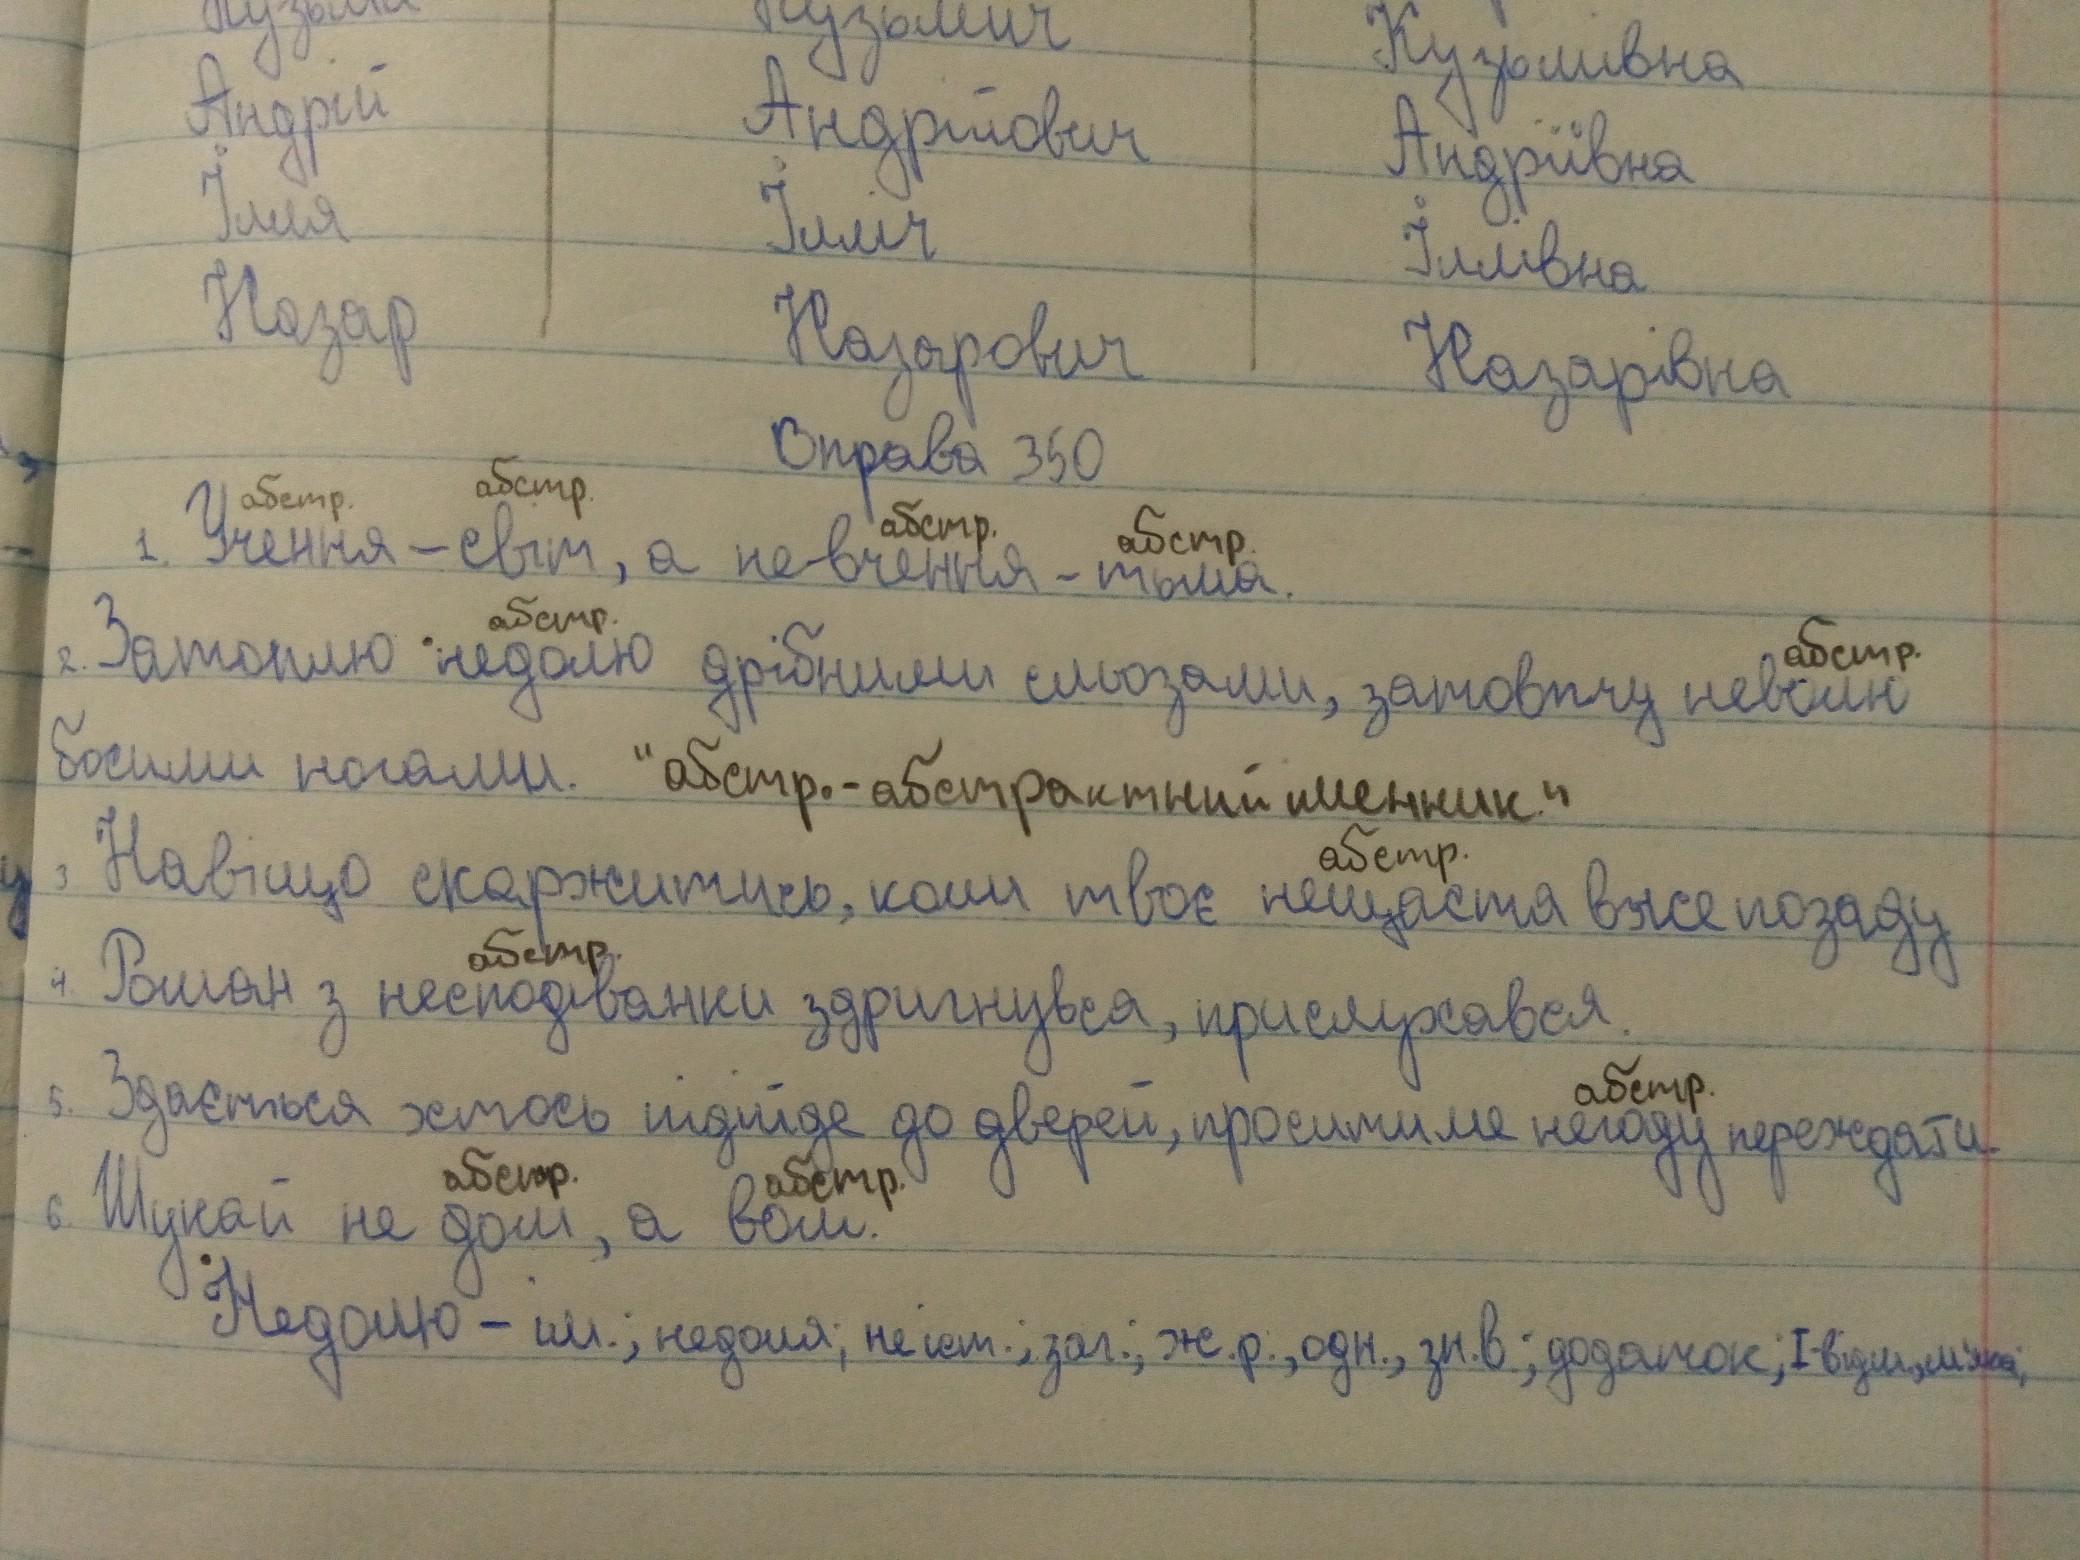 Кузьма Кузьмич Кузьмівна
Андрій Андрійович Андріївна
Ілля Ілліч Іллівна
Назар Назарович Назарівна
Вправа 350
абстр. абстр. абстр. абстр.
1. Учення – світ, а не вчення – тьма.
абстр. абстр.
2. Затоплю недолю дрібними сльозами, затовпчу неволю
босими ногами. "абстр. - абстрактний іменник."
абстр.
3 Навіщо скаржитись, коли твоє нещастя вже позаду
абстр.
4. Роман з несподіванки здригнувса, прислухався.
абстр.
5. Здається хтось підійде до дверей, проситиме негоду переждати.
абстр. абстр.
6. Шукай не дом, а вом.
Недолю – ім.; недоля; неіст.; заг.; ж.р., одн., зн.в.; додаток; І-відм., м'яка;